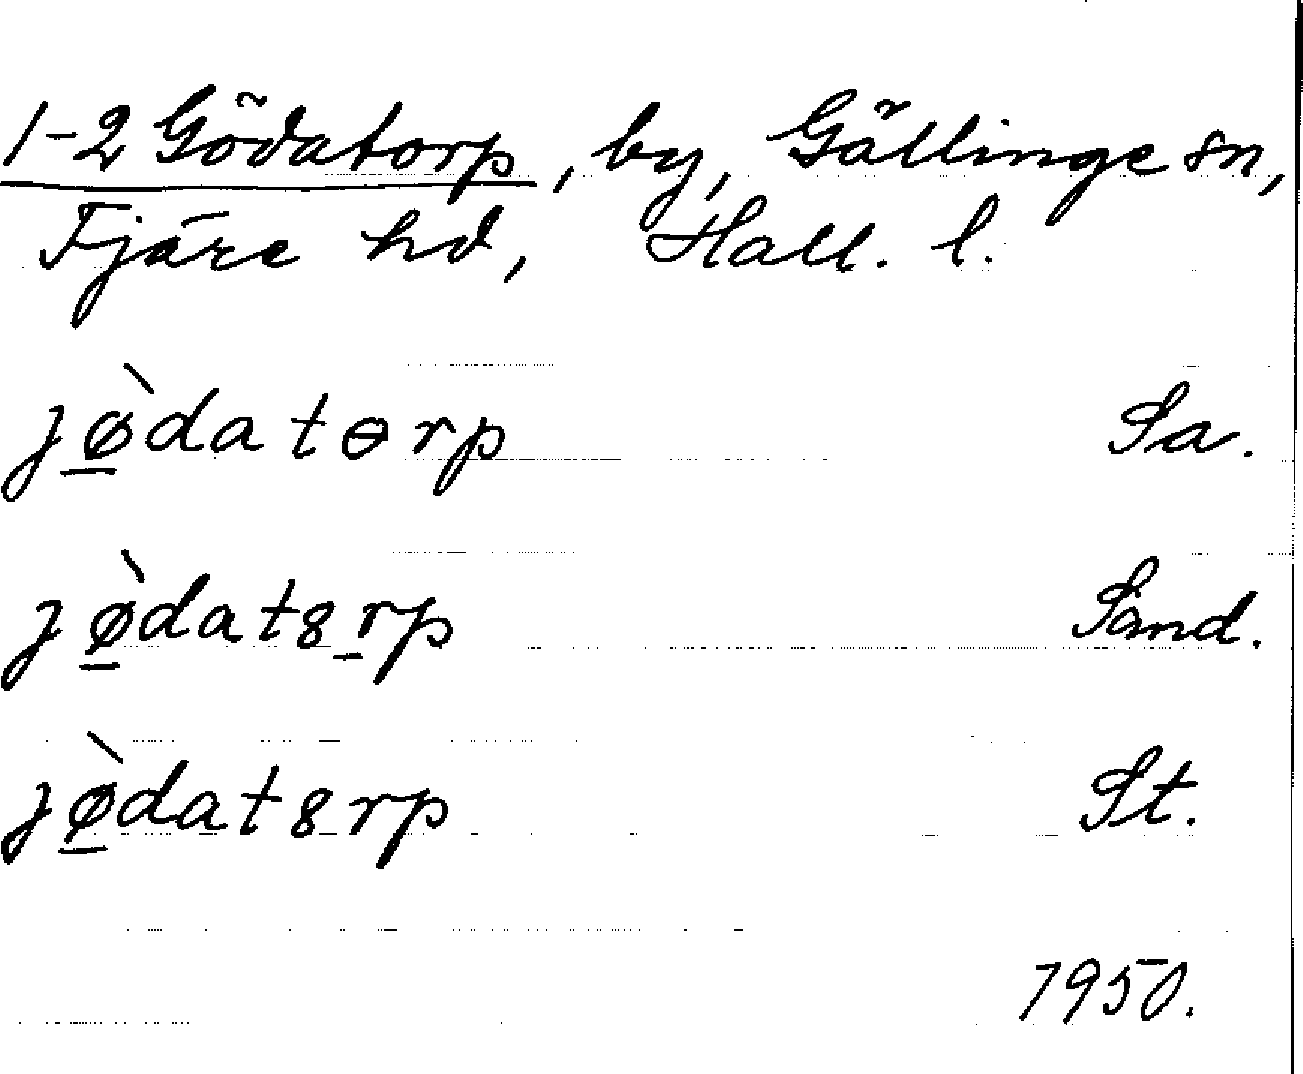 1-2 Gödatorp, by, Gällinge sn,
Fjäre hd, Hall. l.
jø̀datɵrp Sa.
jø̀dat8rp Sand.
jø̀dat8rp St.
1950.